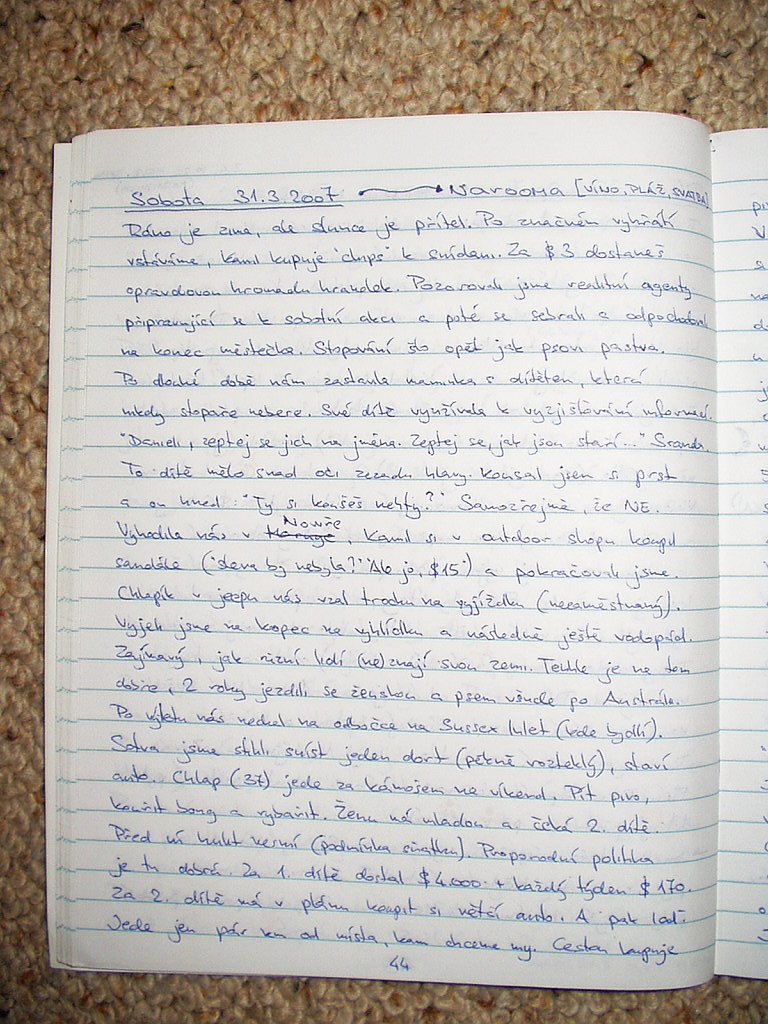 Sobota 31.3.2007 → Narooma [VÍNO, PLÁŽ, SVATBA]
Ráno je zima, ale slunce je přítel. Po značném vyhřátí
vstáváme, Kamil kupuje "chips" k snídani. Za $3 dostaneš
opravdovou hromadu hranolek. Pozorovali jsme realitní agenty
připravující se k sobotní akci a poté se sebrali a odpochodovali
na konec městečka. Stopování šlo opět jak psovi pastva.
Po dlouhé době nám zastavila maminka s dítětem, která
nikdy stopaře nebere. Své dítě využívala k vyzjišťování informací.
"Danieli, zeptej se jich na jména. Zeptej se, jak jsou staří..." Sranda.
To dítě mělo snad oči zezadu hlavy. Kousal jsem si prst
a on hned: "Ty si koušeš nehty?" Samozřejmě, že NE.
Vyhodila nás v Nowře, Kamil si v outdoor shopu koupil
sandále ("sleva by nebyla?" "Ale je, $15") a pokračovali jsme.
Chlapík v jeepu nás vzal trochu na vyjížďku (nezaměstnaný).
Vyjeli jsme na kopec na vyhlídku a následně ještě vodopád.
Zajímavý, jak různí lidi (ne)znají svou zemi. Tenhle je na tom
dobře, 2 roky jezdili se ženskou a psem všude po Austrálii.
Po výletu nás nechal na odbočce na Sussex Inlet (kde bydlí).
Sotva jsme stihli sníst jeden dort (pěkně rozteklý), staví
auto. Chlap (37) jede za kámošem na víkend. Pít pivo,
kouřit bong a rybařit. Ženu má mladou a čeká 2. dítě.
Před ní hulit nesmí (podmínka sňatku). Proporodní politika
je tu dobrá. Za 1. dítě dostal $4.000 + každý týden $170.
Za 2. dítě má v plánu koupit si větší auto. A pak loď.
Jede jen pár km od místa, kam chceme my. Cestou kupuje
44